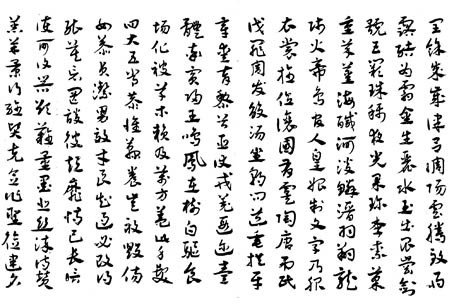 閏餘成歲律呂調陽雲騰致雨
露結為霜金生麗水玉出崑崗劍
號巨闕珠稱夜光果珍李柰菜
重芥薑海鹹河淡鱗潛羽翔龍
師火帝鳥官人皇始制文字乃服
衣裳推位讓國有虞陶唐弔民
伐罪周發湯坐朝問道垂拱平
章愛育黎首臣伏戎羌遐邇壹
體率賓歸王鳴鳳在樹白駒食
場化被草木賴及萬方蓋此身髮
四大五常恭惟鞠養豈敢毀傷
女慕貞潔男效才良知過必改得
能莫忘罔談彼短靡恃己長信
使可覆器欲難量墨悲絲染詩讚
羔羊景行維賢克念作聖德建名